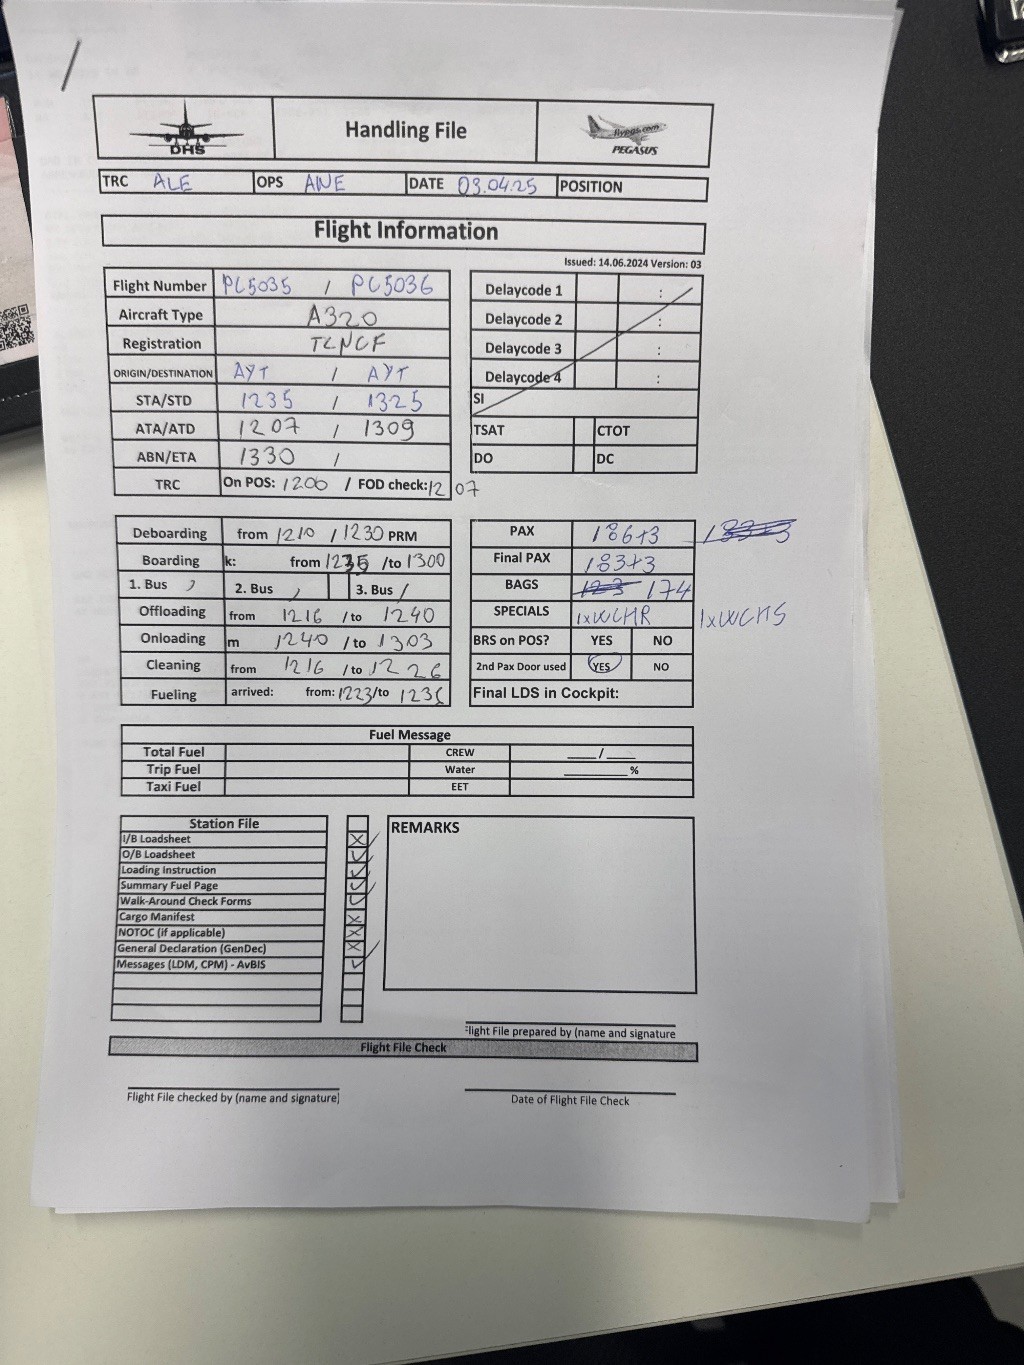 DHS
Handling File
flypgs.com
PEGASUS
TRC ALE OPS ANE DATE 03.04.25 POSITION
Flight Information
Issued: 14.06.2024 Version: 03
Flight Number PC5035 / PC5036
Aircraft Type A320
Registration TCNCF
ORIGIN/DESTINATION AYT / AYT
STA/STD 1235 / 1325
ATA/ATD 1207 / 1309
ABN/ETA 1330 /
TRC On POS: 1200 / FOD check: 12 07
Delaycode 1 :
Delaycode 2 :
Delaycode 3 :
Delaycode 4 :
SI
TSAT CTOT
DO DC
Deboarding from 1210 / 1230 PRM
Boarding k: from 1235 /to 1300
1. Bus 2. Bus 3. Bus /
Offloading from 1216 /to 1240
Onloading m 1240 /to 1303
Cleaning from 1216 /to 1226
Fueling arrived: from: 1223/to
PAX 186+3 183+3
Final PAX 183+3
BAGS 123 174
SPECIALS 1xWCHR 1xWCHS
BRS on POS? YES NO
2nd Pax Door used YES NO
Final LDS in Cockpit:
Fuel Message
Total Fuel CREW ____/____
Trip Fuel Water ________%
Taxi Fuel EET
Station File
I/B Loadsheet X
O/B Loadsheet ✓
Loading Instruction ✓
Summary Fuel Page ✓
Walk-Around Check Forms ✓
Cargo Manifest X
NOTOC (if applicable) X
General Declaration (GenDec) X
Messages (LDM, CPM) - AvBIS ✓
REMARKS
Flight File prepared by (name and signature
Flight File Check
Flight File checked by (name and signature)
Date of Flight File Check